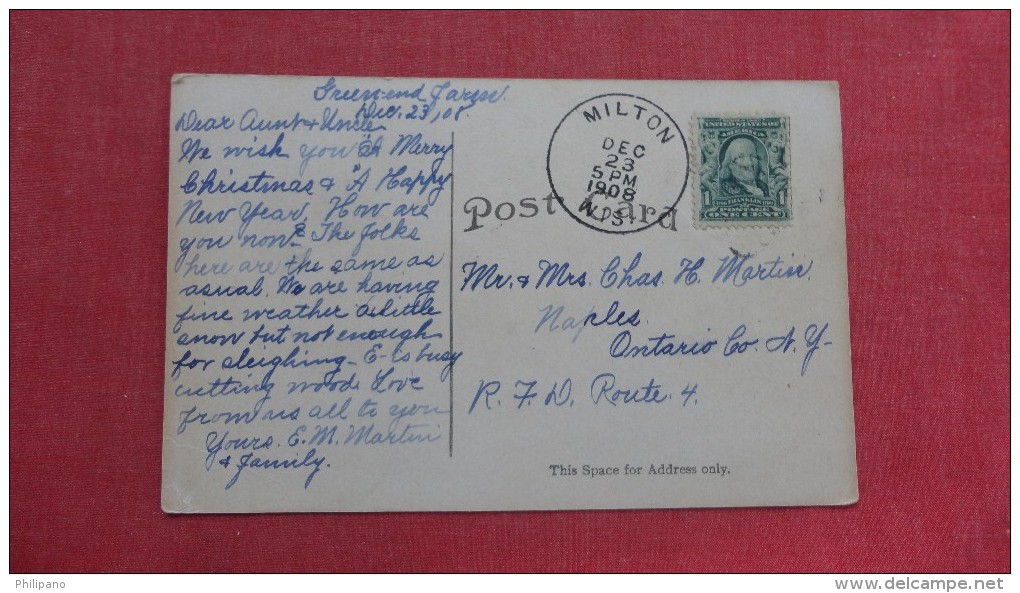 Green-end Farm.
Dec. 23, 08.
Dear Aunt & Uncle
We wish you "A Merry
Christmas & "A Happy
New Year. How are
you now? The folks
here are the same as
asual. We are having
fine weather a little
snow but not enough
for sleighing - E- is busy
cutting wood. Love
from us all to you
Yours. E. M. Martin
& family.
MILTON
DEC
23
5 PM
1908
WIS.
UNITED STATES OF
AMERICA
1 FRANKLIN 1
POSTAGE
ONE CENT
Post Card
Mr. & Mrs. Chas. H. Martin.
Naples.
Ontario Co. N. Y-
R. F. D. Route. 4.
This Space for Address only.
Philipano
www.delcampe.net